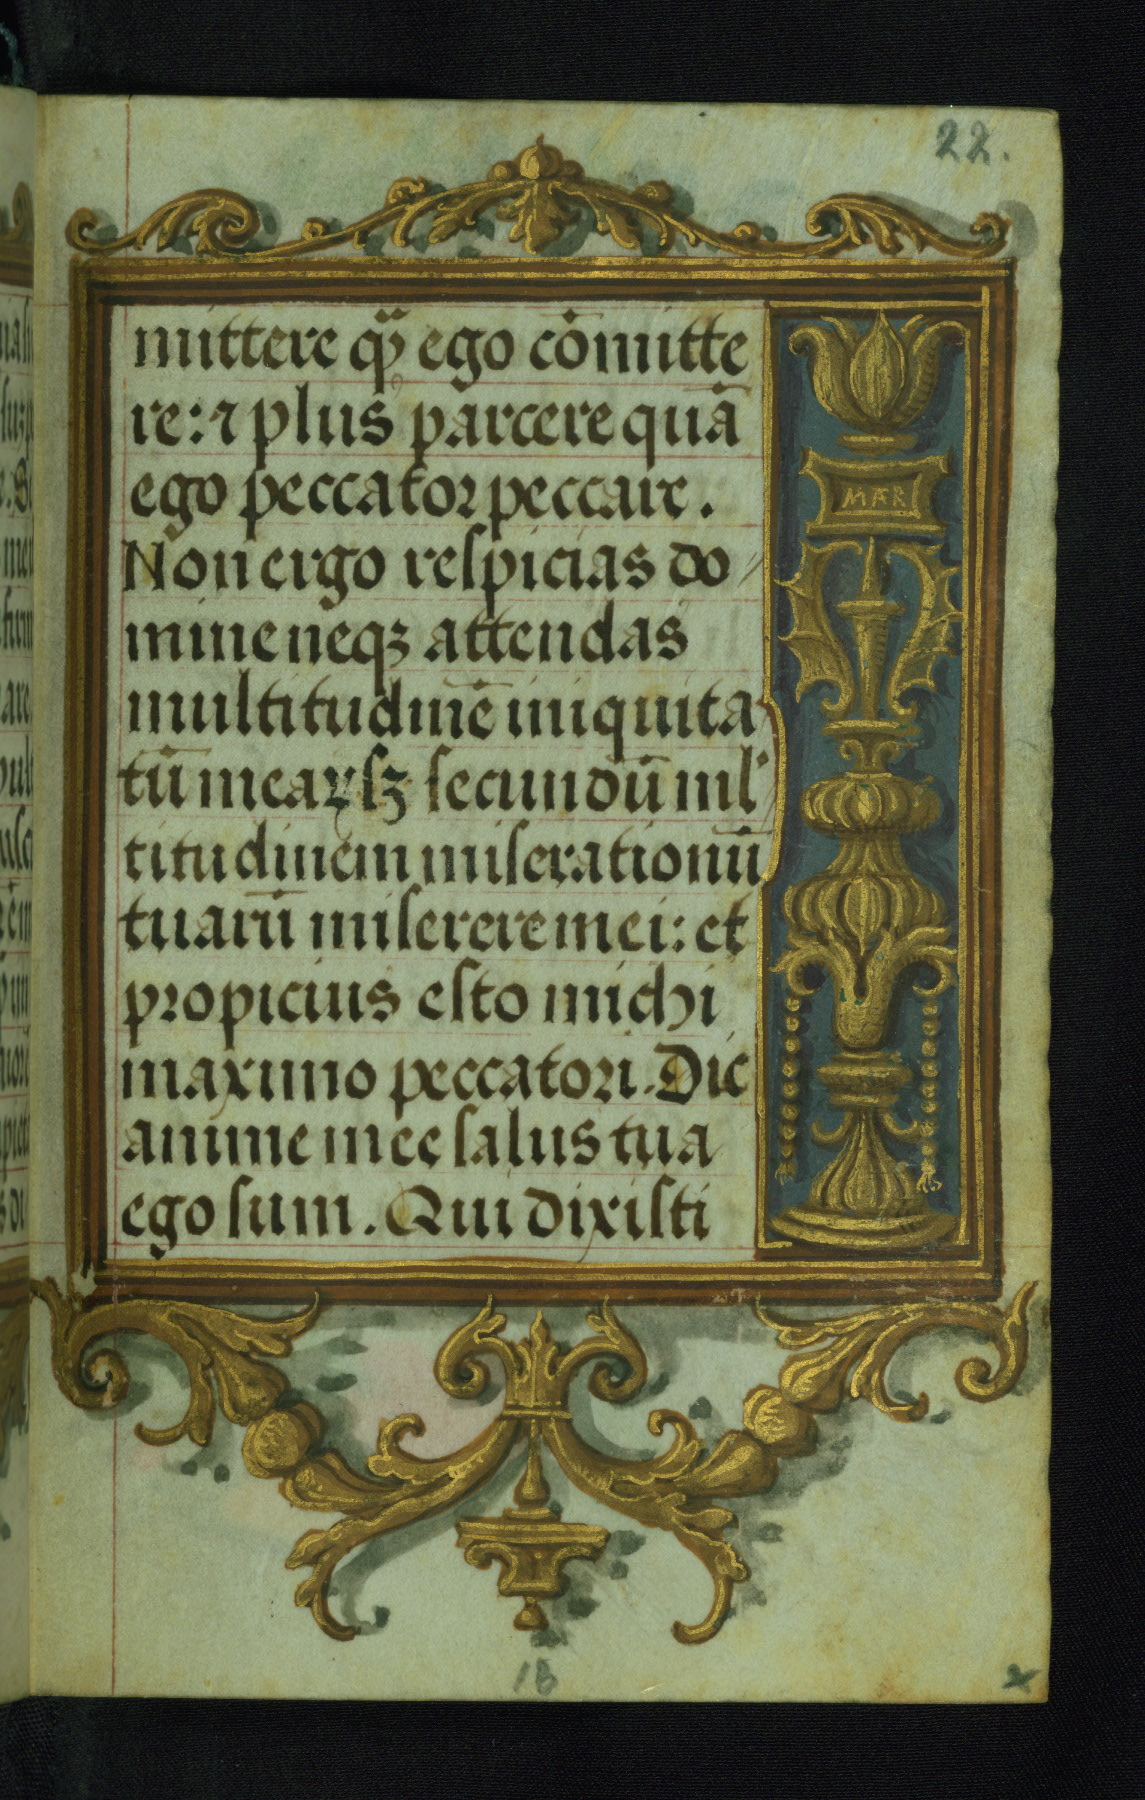 22.
mittere qꝫ̄ ego cōmitte
re: ⁊ plus parcere quā
ego peccator peccare.
Non ergo respicias do//
mine neqꝫ attendas
multitudinē iniquita
tū mearꝝ sꝫ secundū ml'//
titudinem miserationū
tuarū miserere mei: et
propicius esto michi
maximo peccatori. Dic
anime mee salus tua
ego sum. Qui dixisti
MAR
18
x